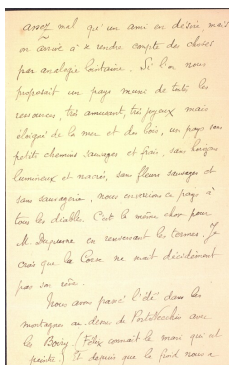 assez mal qu'un ami en désire mais
on arrive à se rendre compte des choses
par analogie lointaine. Si l'on nous
proposait un pays muni de toutes les
ressources, très amusant, très joyeux mais
éloigné de la mer et des bois, un pays sans
petits chemins sauvages et frais, sans horizons
lumineux et nacrés, sans fleurs sauvages et
sans sauvagerie, nous enverrions ce pays à
tous les diables. C'est la même chose pour
M. en renversant les termes. Je
crois que la Corse ne serait décidément
pas son rêve.
Nous avons passé l'été dans les
montagnes au-dessus de Porto-Vecchio avec
les (Félix connaît le mari qui est
peintre). Et depuis que le froid nous a